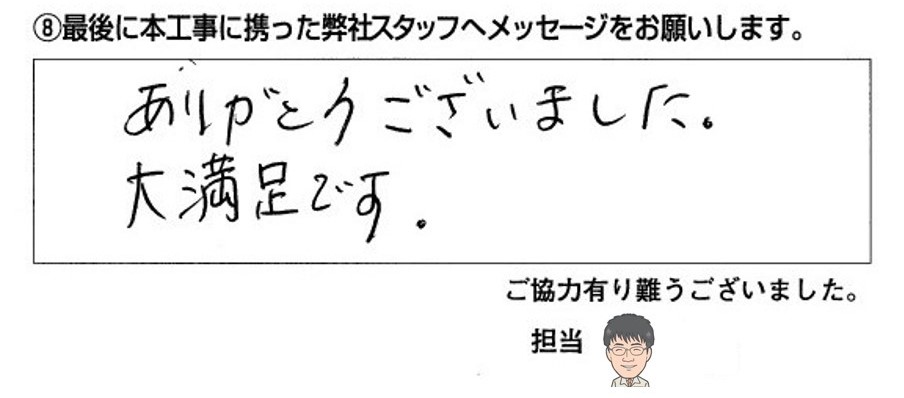 ⑧最後に本工事に携った弊社スタッフへメッセージをお願いします。
ありがとうございました。
大満足です。
ご協力有り難うございました。
担当